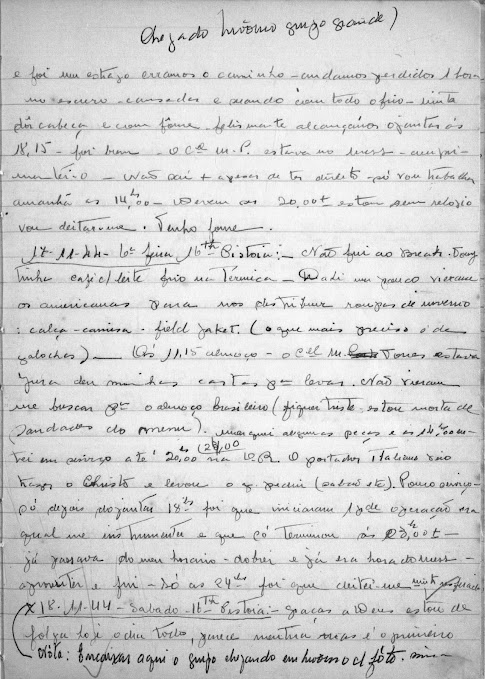 Chegado Inverno grupo grande)
e foi um estrago erramos o caminho - andamos perdidos 1 hora
no escuro - cansadas e suando com todo o frio - muita
dôr cabeça e com fôme - felismente alcançamos o jantar ás
18,15 - foi bom - O Cel M.P. estava no mess - cumpri
mentei-o - Não sai + apesar de ter direito - só vou trabalhar
amanhã as 14,00 - Devem ser 20,00 + estou sem relogio
vou deitar-me. Tenho fome.
17-11-44 - 6ª feira 16th Pistoia: - Não fui ao Break-
tinha café c/ leite frio na térmica - Dali um pouco vieram
os americanas para nos distribuir roupas de inverno
: calça - camisa - field jaket. (o que mais preciso é de
galochas) - Às 11,15 almoço - o Cel M. Torres estava
dei minhas cartas pª levar. Não vieram
me buscar pª o almoço Brasileiro (fiquei triste - estou morta de
saudades do arroz). marquei algumas peças e as 14,00 en-
trei em serviço até 20,00 na O.R. O portador Italiano
trazer o Christo e levou o q. pediu (sabão etc). Pouco serviço -
só depois do jantar 18hs foi que iniciaram 1 gde operação na
qual me instrumentei e que só terminou ás 23,00 -
já passava do meu horario - dobrei e já era hora do mess -
aproveitei e fui - Só as 24hs foi que deitei-me muito resfriada
X 18-11-44 - Sabado - 16th Pistoia - graças a Deus estou de
folga hoje o dia todo, parece mentira mas é o primeiro
Nóta: Encaixar aqui o grupo chegando em inverno cl fóto.